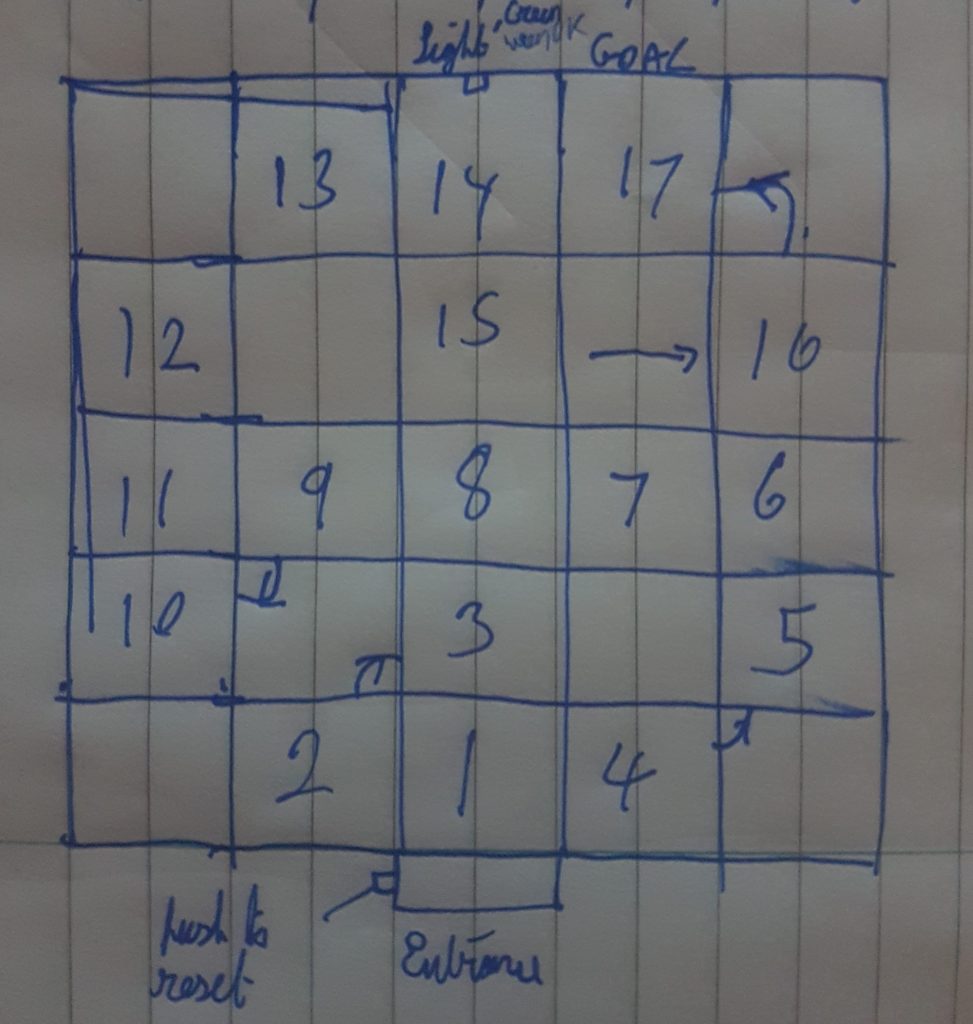 Light, Green
when OK
GOAL
13 14 17
12 15 16
11 9 8 7 6
10 3 5
2 1 4
push to
reset
Entrance